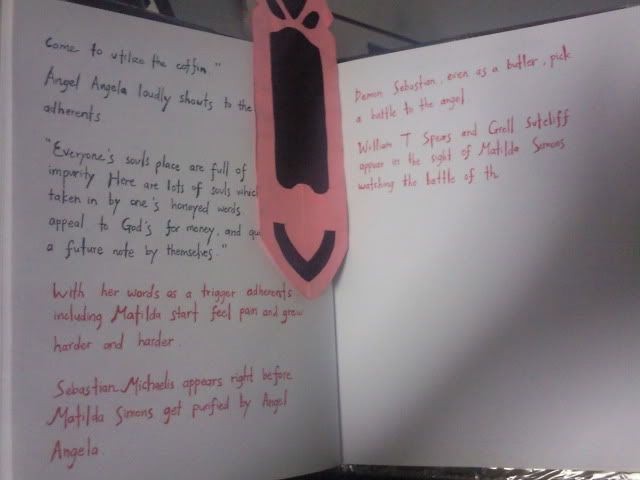 Come to utilize the coffin"
Angel Angela loudly shouts to the
adherents
"Everyone's souls place are full of
impurity Here are lots of souls which
taken in by one's honeyed words
appeal to God's for money, and
a future note by themselves."
With her words as a trigger adherents
including Matilda start feel pain and grew
harder and harder.
Sebastian Michaelis appears right before
Matilda Simons get purified by Angel
Angela
Demon Sebastian, even as a butler, pick
a battle to the angel.
William T Spears and Grell Sutcliff
appear in the sight of Matilda Simons
watching the battle of th